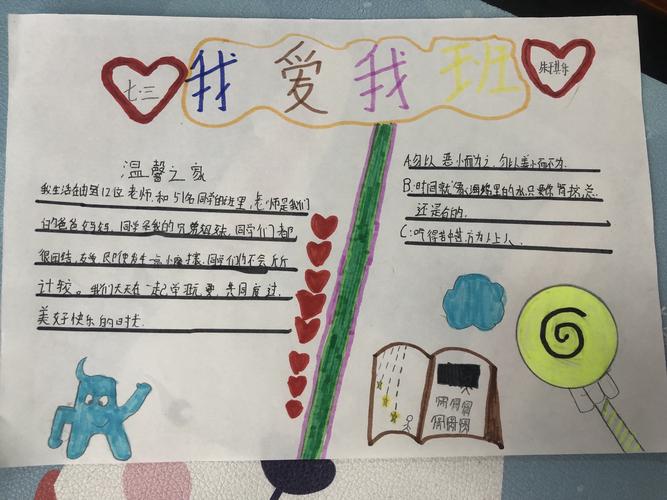 七.三
我爱我班
温馨之家
我生活在由12位老师,和51名同学的班里,老师是我们
的爸爸妈妈,同学是我的兄弟姐妹,同学们都
很团结,友爱,即使发生一点小摩擦,同学们也不会斤斤
计较。我们天天在一起学玩,共同度过
美好快乐的时光.
A:勿以恶小而为之,勿以善小而不为.
B:时间就象海绵里的水,只要你肯挤,总
还是有的.
C:吃得苦中苦,方为人上人